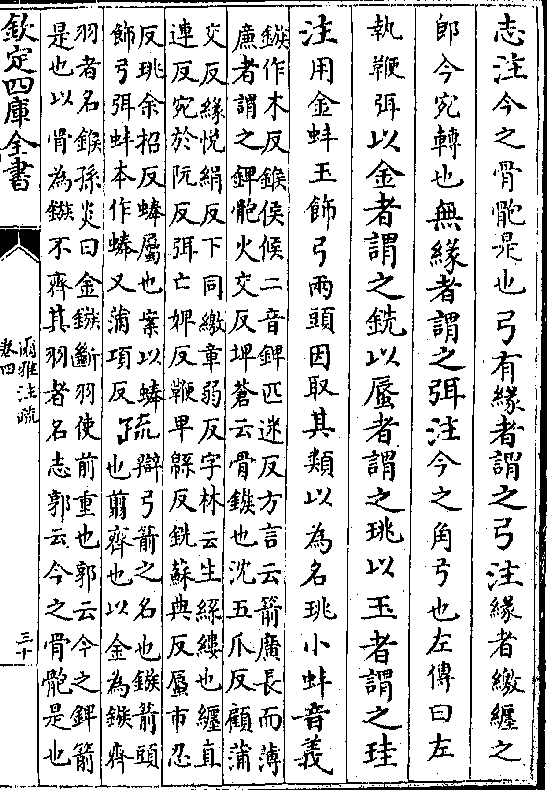 志注今之骨骲是也弓有緣者謂之弓注緣者繳纏之
即今宛轉也無緣者謂之弭注今之角弓也左傳曰左
執鞭弭以金者謂之銑以蜃者謂之珧以玉者謂之珪
注用金蚌玉飾弓兩頭因取其類以為名珧小蚌音義
鏃作木反鍭侯候二音錍匹迷反方言云箭廣長而薄
廉者謂之錍骲火交反埤蒼云骨鏃也沈五爪反顧蒲
交反緣悅絹反下同繳章弱反字林云生絲縷也纏直
連反宛於阮反弭亡婢反鞭卑緜反銑蘇典反蜃市忍
反珧余招反蜯屬也案以蜯
飾弓弭蚌本作蜯又蒲項反
疏辯弓箭之名也鏃箭頭
也翦齊也以金為鏃齊
羽者名鍭孫炎曰金鏑斷羽使前重也郭云今之錍箭
是也以骨為鏃不齊其羽者名志郭云今之骨骲是也
欽定四庫全書
爾雅注疏
卷四
三十